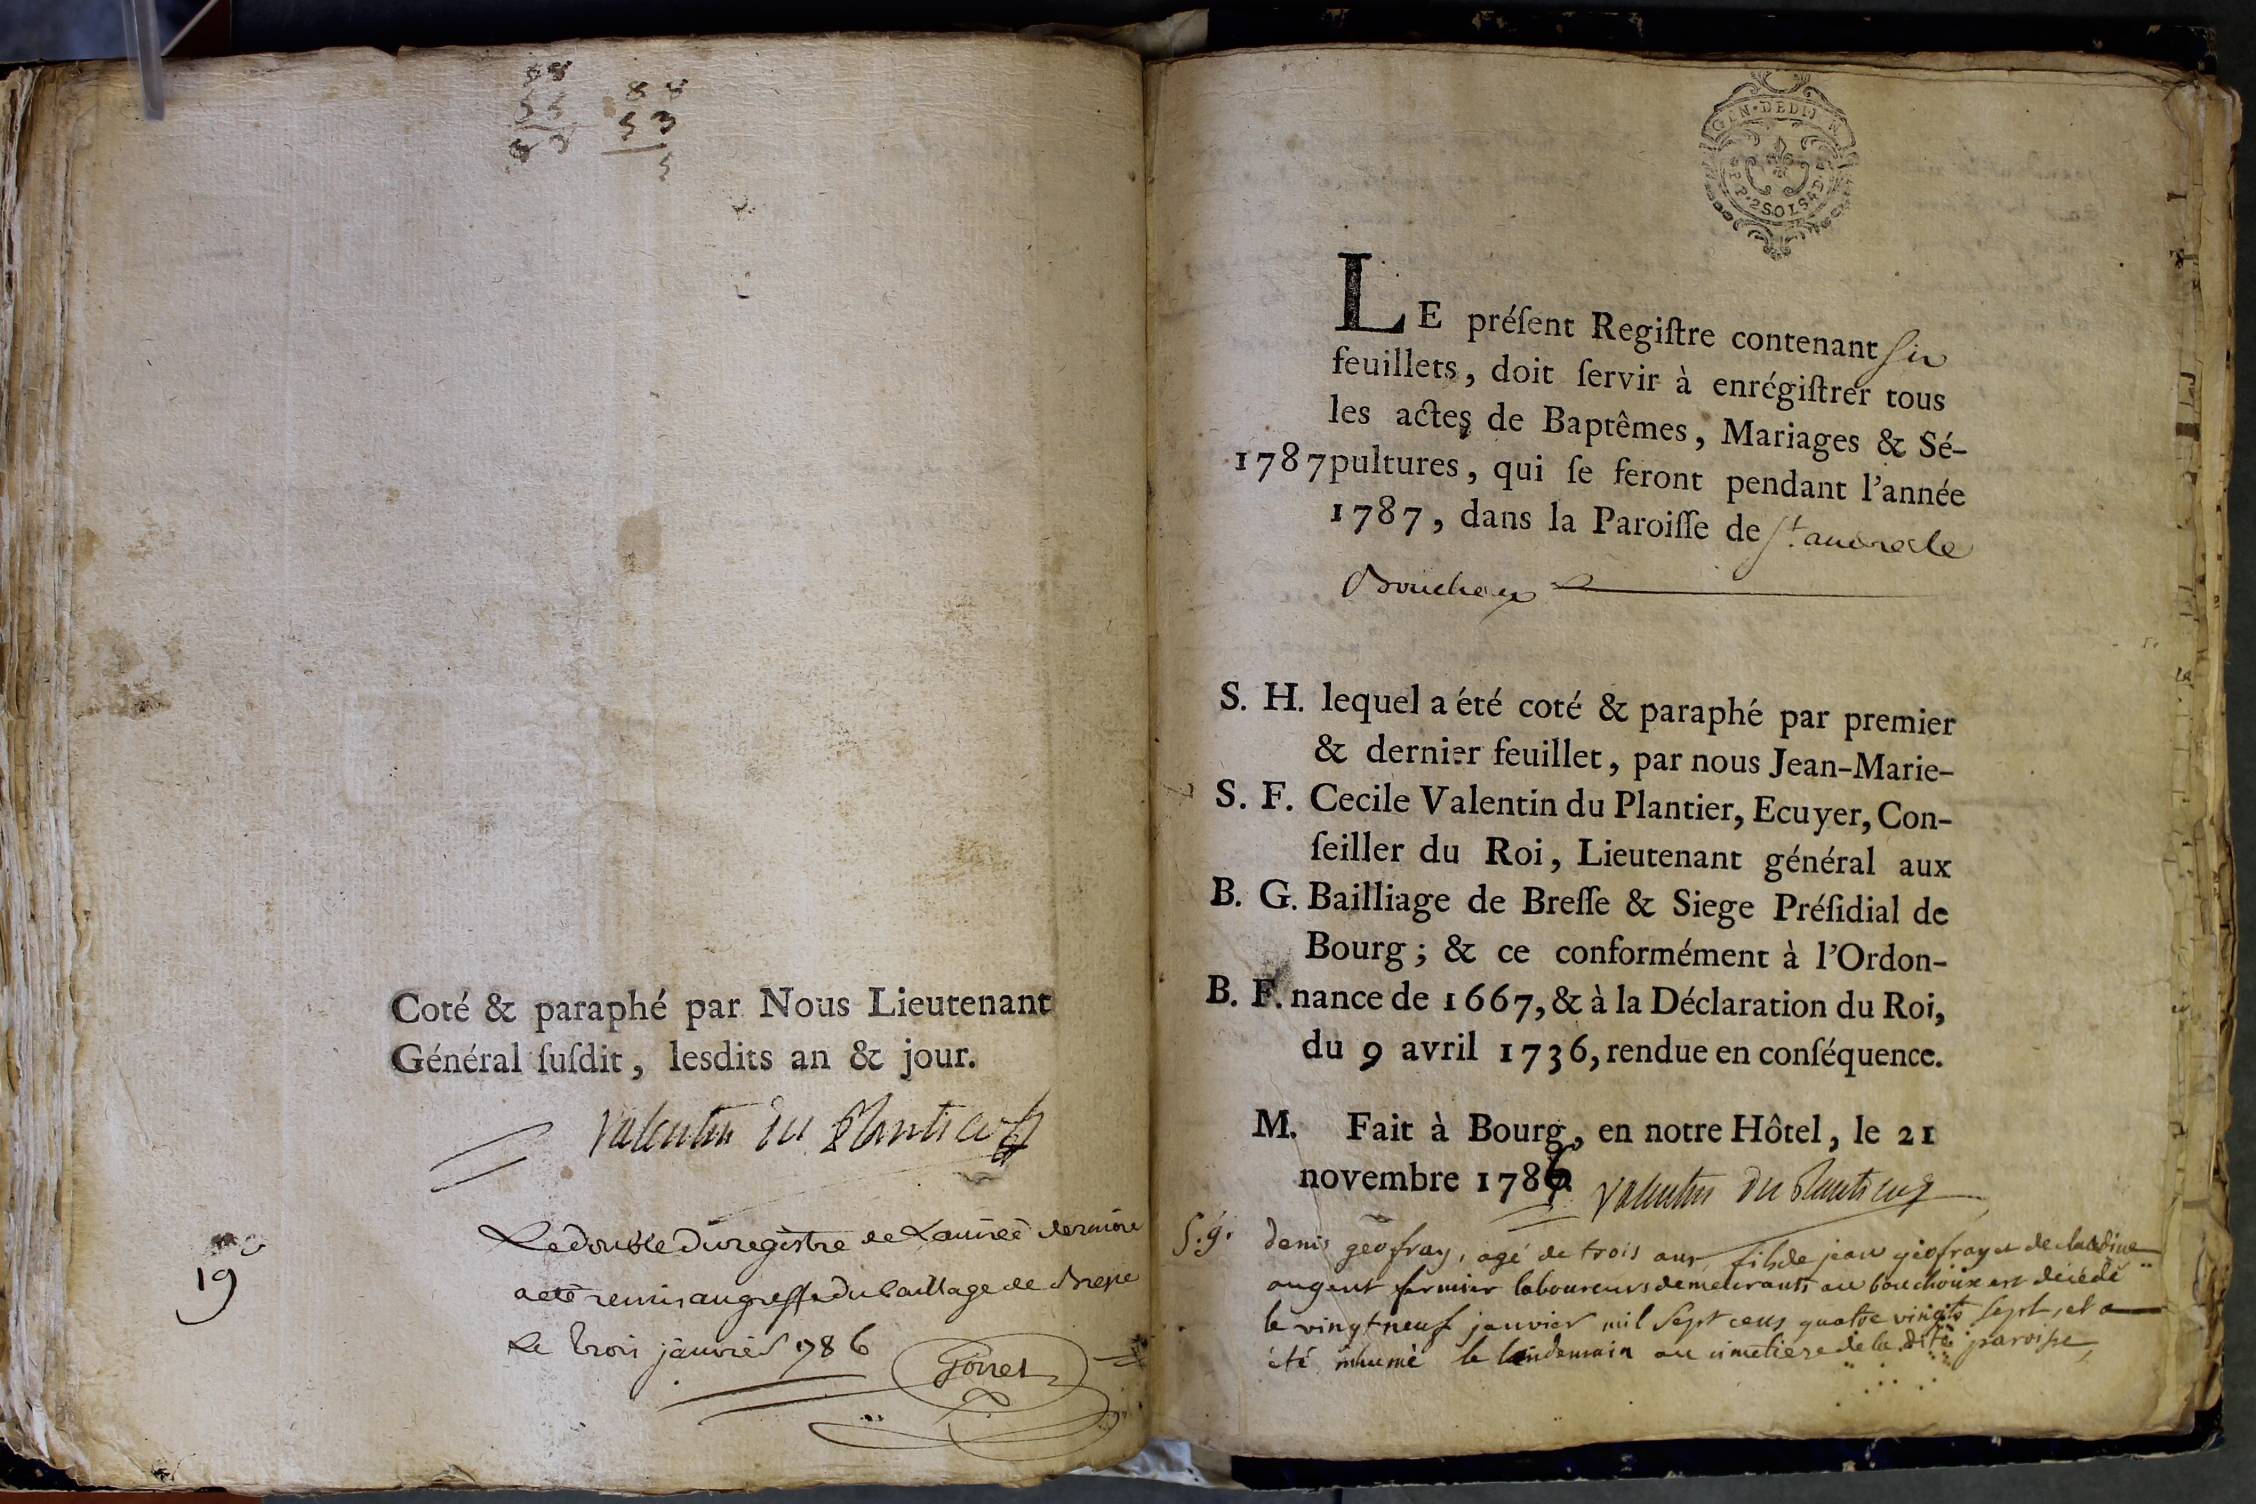 88
53
88
53
5
Coté & paraphé par Nous Lieutenant
Général ſuſdit, lesdits an & jour.
Valentin du Plantier
Le double du registre de L'année derniere
a été remis au greffe du bailliage de Bresse
Le trois janvier 1786
19
GEN·DEDIJON
2SOLS4D
LE préſent Regiſtre contenant six
feuillets, doit ſervir à enrégiſtrer tous
les actes de Baptêmes, Mariages & Sé-
1787 pultures, qui ſe feront pendant l'année
1787, dans la Paroiſſe de St. andre le
Bouchoux
S. H. lequel a été coté & paraphé par premier
& dernier feuillet, par nous Jean-Marie-
S. F. Cecile Valentin du Plantier, Ecuyer, Con-
ſeiller du Roi, Lieutenant général aux
B. G. Bailliage de Breſſe & Siege Préſidial de
Bourg; & ce conformément à l'Ordon-
B. F. nance de 1667, & à la Déclaration du Roi,
du 9 avril 1736, rendue en conſéquence.
M. Fait à Bourg, en notre Hôtel, le 21
novembre 1786 Valentin du Plantier
S. g. denis geofray, agé de trois ans, fils de jean géofray et de claudine
augent fermier laboureurs demeurants au bouchoux est décédé
le vingt neuf janvier mil sept cens quatre vingts sept, et a
été inhumé le lendemain au cimetiere de la dite paroisse,